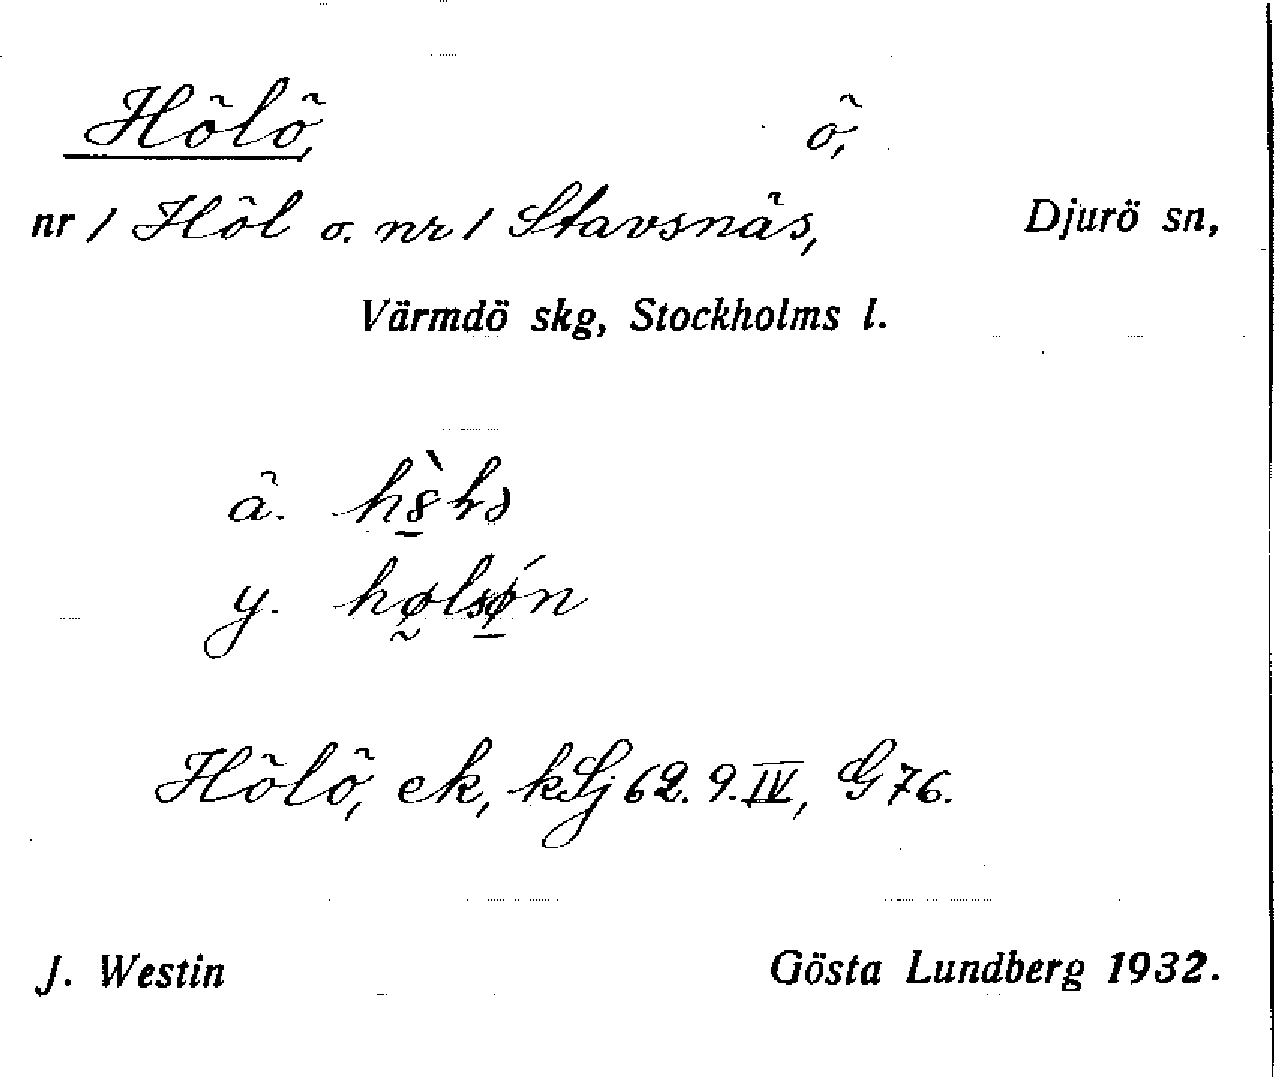 Hölö, ö,
nr 1 Höl o. nr 1 Stavsnäs, Djurö sn,
Värmdö skg, Stockholms l.
ä.
y.
Hölö, ek, kSj 62. 9. IV, G 76.
J. Westin Gösta Lundberg 1932.